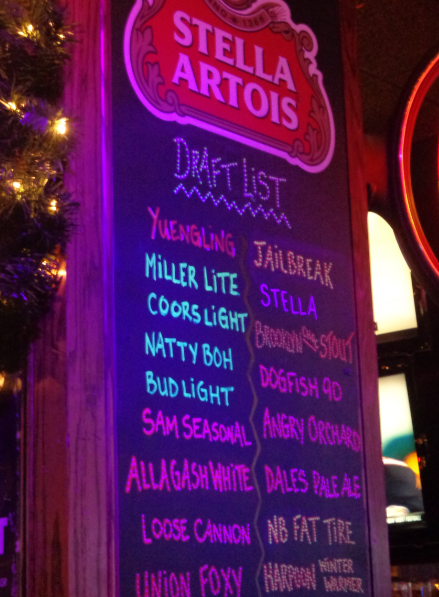 STELLA
ARTOIS
DRAFT LIST
YUENGLING
MILLER LITE
COORS LIGHT
NATTY BOH
BUD LIGHT
SAM SEASONAL
ALLAGASH WHITE
LOOSE CANNON
UNION FOXY
JAILBREAK
STELLA
BROOKLYN STOUT
DOGFISH 90
ANGRY ORCHARD
DALES PALE ALE
NB FAT TIRE
HARPOON WINTER WARMER